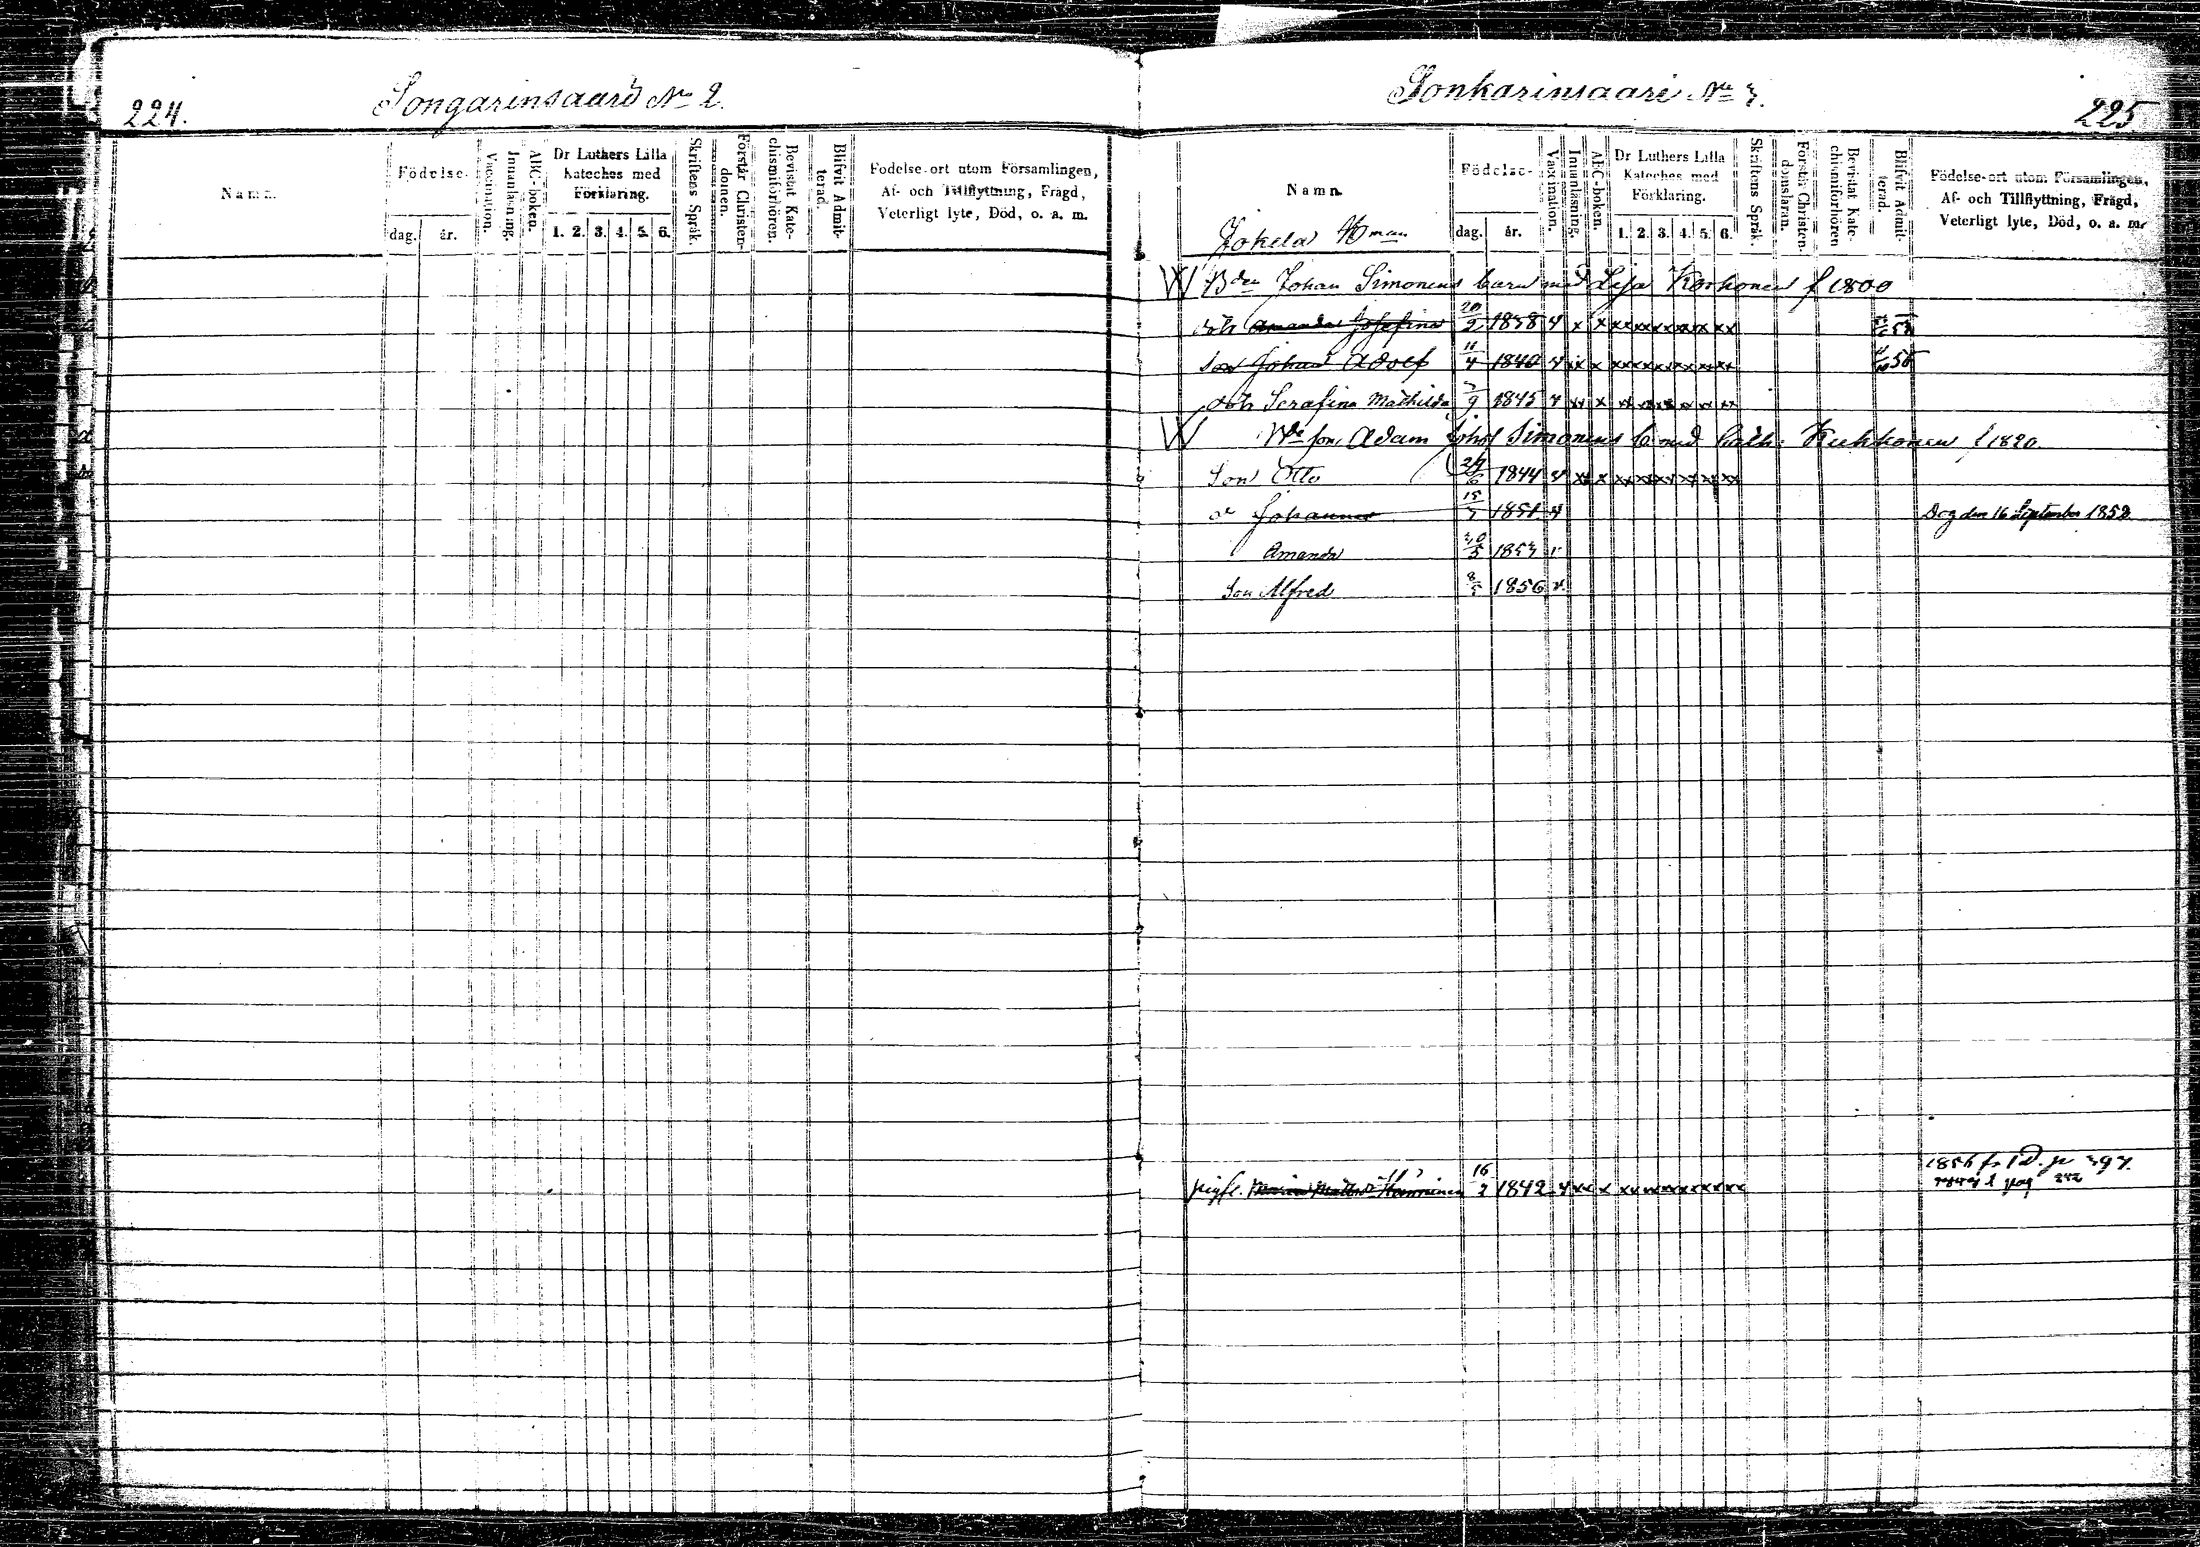 224.
Songarinsaari No 2.
Namn.
Födelse-
dag. år.
Vaccination.
Innanläsning.
ABC-boken.
Dr Luthers Lilla
Kateches med
Förklaring.
1. 2. 3. 4. 5. 6.
Skriftens Språk.
Förstår Christen-
domen.
Bevistat Kate-
chismiförhören.
Blifvit Admit-
terad.
Födelse-ort utom Församlingen,
Af- och Tillflyttning, Frägd,
Veterligt lyte, Död, o. a. m.
Sonkarinsaari No 3.
225
Namn.
Jokela Hman
Födelse-
dag. år.
Vaccination.
Innanläsning.
ABC-boken.
Dr Luthers Lilla
Kateches med
Förklaring.
1. 2. 3. 4. 5. 6.
Skriftens Språk.
Förstår Christen-
domsläran.
Bevistat Kate-
chismiförhören
Blifvit Admit-
terad.
Födelse-ort utom Församlingen,
Af- och Tillflyttning, Frägd,
Veterligt lyte, Död, o. a. m.
Bden Johan Simonens barn med Lisa Korhonen f 1800
dotr Amanda Josefina 20/9 1838
son Johan Adolf 11/4 1840
dotr Serafina Mathilda 7/9 1845
Adam Johs Simonens b med Cath: Kukkonen f 1820.
Son Otto 29/6 1844
Johannes 15/7 1851 Dog den 16 September 1852
Amanda 30/5 1853
Son Alfred 1856
16/2 1842 1856 fr p 397.
pag 242